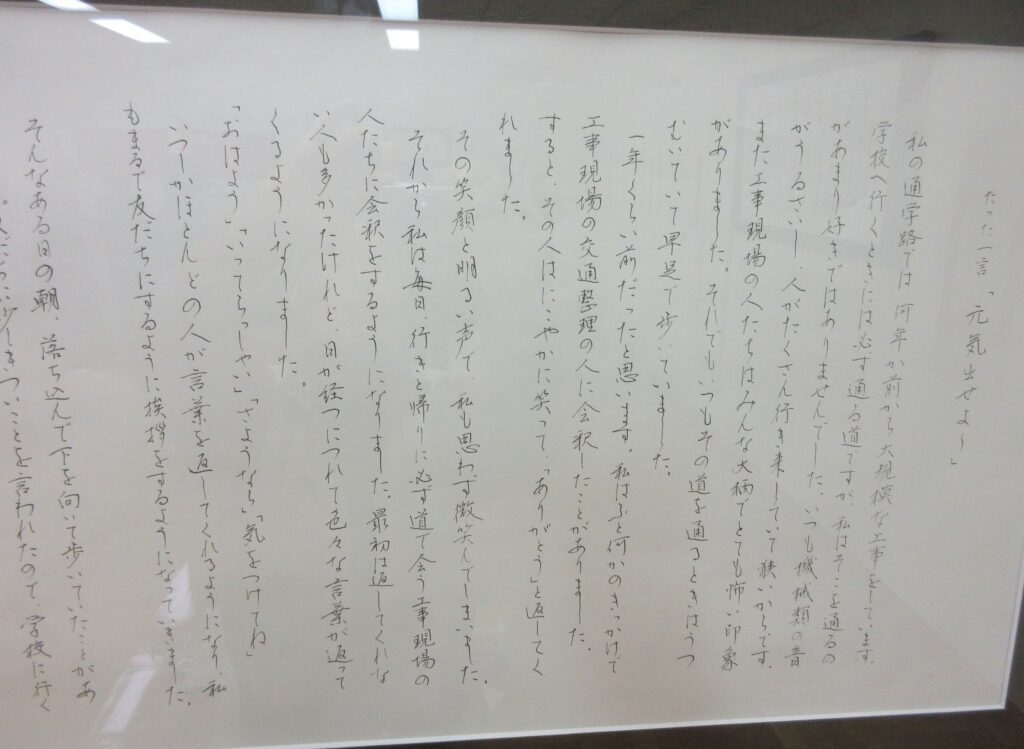 たった一言「元気出せよ〜」
私の通学路では、何年か前から大規模な工事をしています。
学校へ行くときには必ず通る道ですが、私はそこを通るの
があまり好きではありませんでした。いつも機械類の音
がうるさいし、人がたくさん行き来していて狭いからです。
また工事現場の人たちはみんな大柄でとても怖い印象
がありました。それでもいつもその道を通るときはうつ
むいていて早足で歩いていました。
一年くらい前だったと思います。私はふと何かのきっかけで
工事現場の交通整理の人に会釈したことがありました。
すると、その人はにこやかに笑って、「ありがとう」と返してく
れました。
その笑顔と明るい声で、私も思わず微笑んでしまいました。
それから私は毎日、行きと帰りに必ず道で会う工事現場の
人たちに会釈をするようになりました。最初は返してくれな
い人も多かったけれど、日が経つにつれて色々な言葉が返って
くるようになりました。
「おはよう」「いってらっしゃい」「さようなら」「気をつけてね」
いつしかほとんどの人が言葉を返してくれるようになり、私
もまるで友だちにするように挨拶をするようになっていきました。
そんなある日の朝、落ち込んで下を向いて歩いていたことがあ
きついことを言われたので、学校に行く